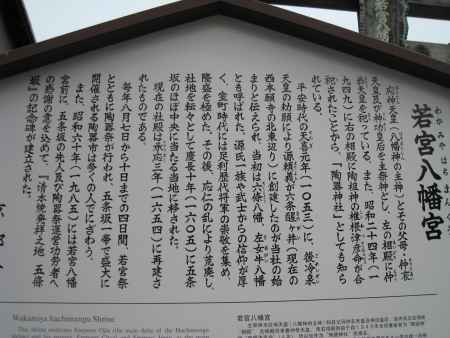 わかみやはちまんぐう
若宮八幡宮
応神天皇（八幡神の主神）とその父母・仲哀
天皇及び神功皇后を主祭神とし、左の相殿に仲
恭天皇を祀っている。また、昭和二十四年（一
九四九）に右の相殿に陶祖神の椎根津彦命が合
祀されたことから、「陶器神社」としても知ら
れている。
平安時代の天喜元年（一〇五三）に、後冷泉
天皇の勅願により源頼義が六条醒ヶ井（現在の
西本願寺の北東辺り）に創建したのが当社の始
まりと伝えられ、当初は六條八幡、左女牛八幡
とも呼ばれた。源氏一族や武士からの信仰が厚
く、室町時代には足利歴代将軍の崇敬を集め、
隆盛を極めた。その後、応仁の乱により荒廃し、
社地を転々として慶長十年（一六〇五）に五条
坂のほぼ中央に当たる当地に移された。
現在の社殿は承応三年（一六五四）に再建さ
れたものである。
毎年八月七日から十日までの四日間、若宮祭
とともに陶器祭が行われ、五条坂一帯で盛大に
開催される陶器市は多くの人でにぎわう。
また、昭和六十年（一九八五）には若宮八幡
宮前に、五条坂の先人及び陶器祭運営功労者へ
の感謝の意を込めて、「清水焼発祥之地　五條
坂」の記念碑が建立された。
京都
Wakamiya Hachimangu Shrine
若宮八幡宮